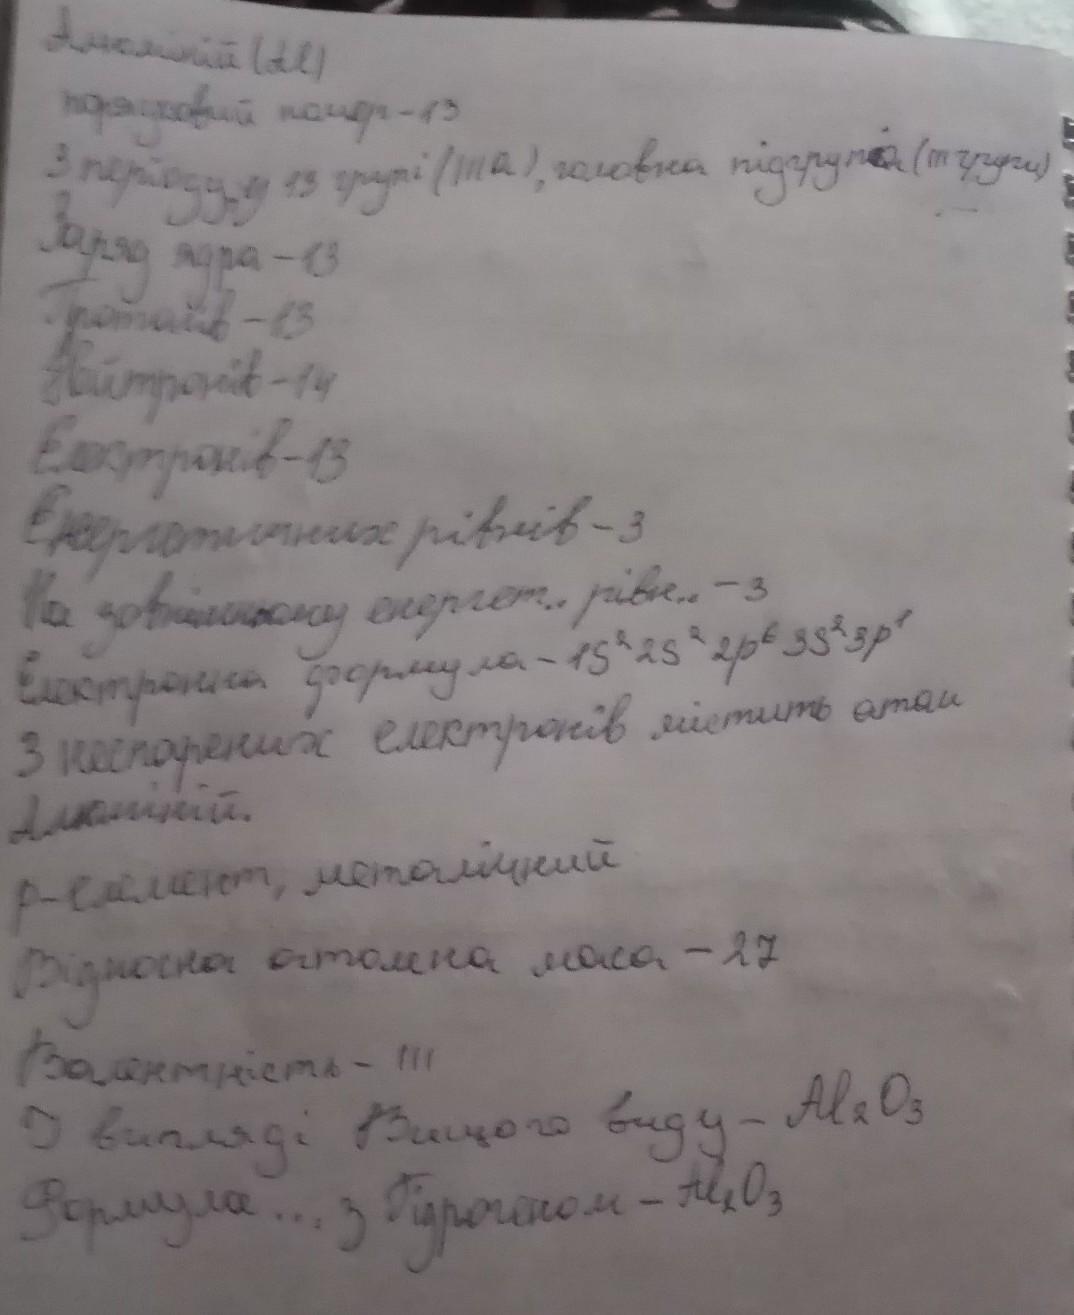 Алюміній (Al)
порядковий номер - 13
3 періоду, у 13 групі (IIIA), головна підгрупа (III групи)
Заряд ядра - 13
Протонів - 13
Нейтронів - 14
Електронів - 13
Енергетичних рівнів - 3
На зовнішньому енергет.. рівн.. - 3
Електронна формула - 1S²2S²2p⁶3S²3p¹
3 неспарених електронів містить атом
Алюміній.
p-елемент, металіцний
Відносна атомна маса - 27
Валентність - III
У випляді Вищого виду - Al₂O₃
Формула ... з Гідрогеном - Al₂O₃